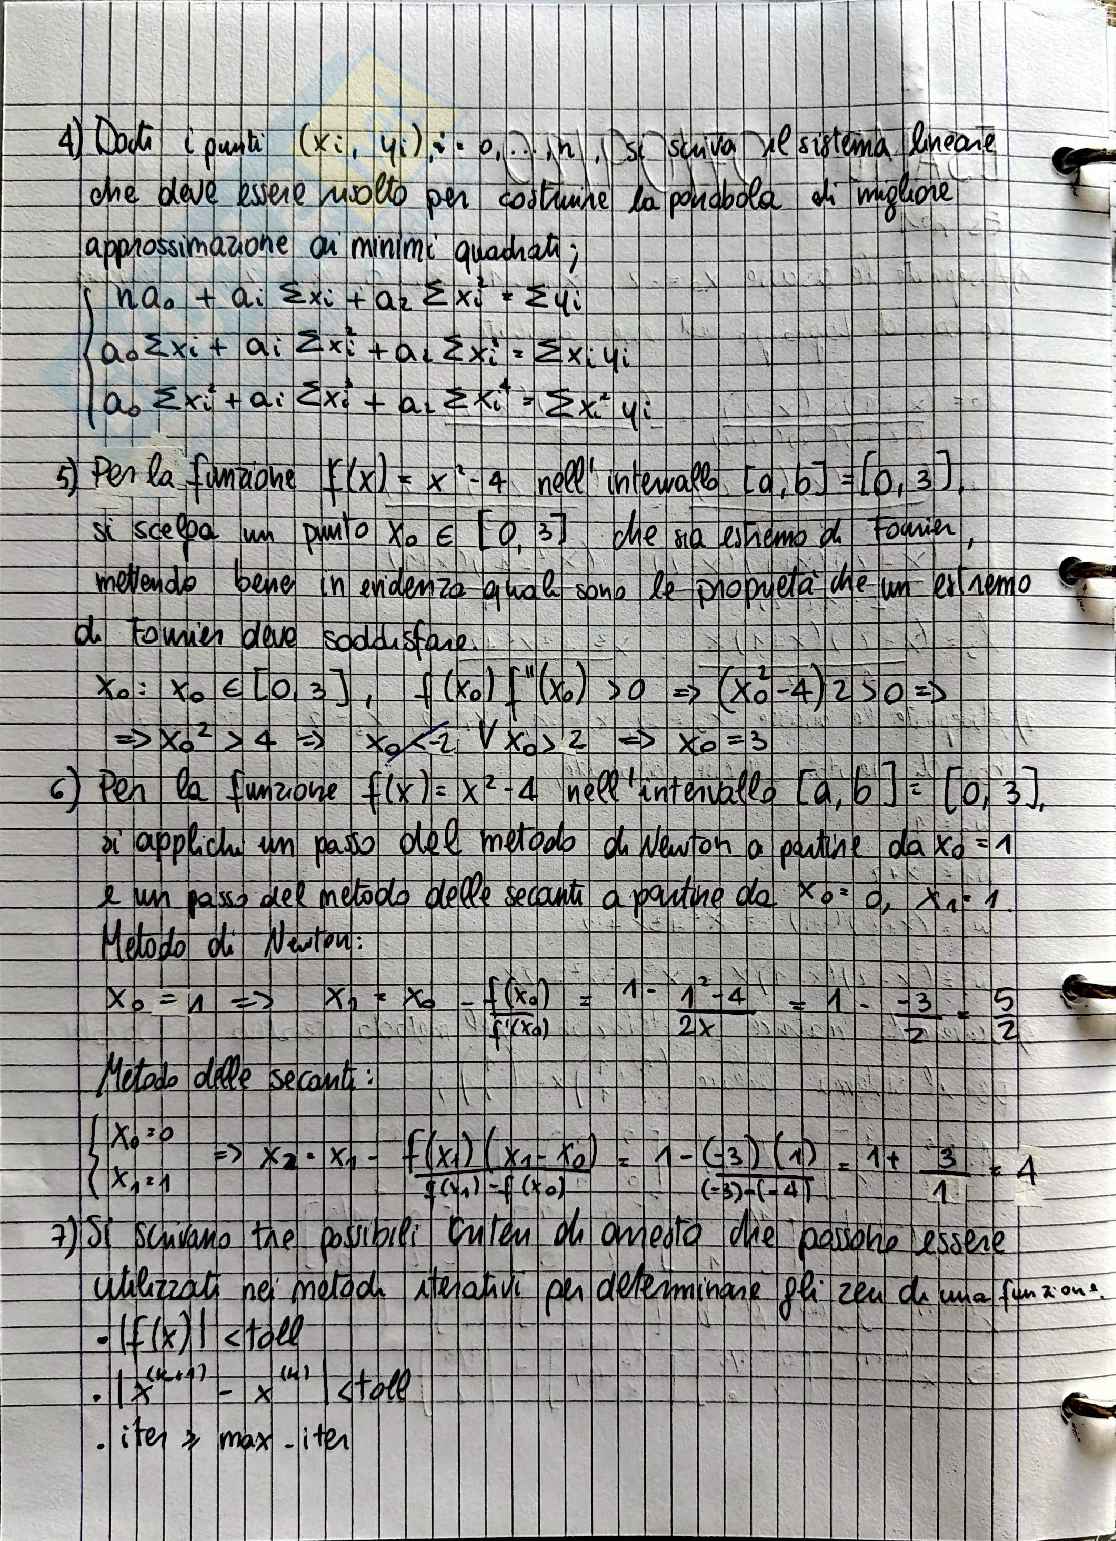 4) Dati i punti (xi, yi), i = 0, ..., n, si scriva il sistema lineare
che deve essere risolto per costruire la parabola di migliore
approssimazione ai minimi quadrati;
{ na₀ + a₁ Σxi + a₂ Σxi² = Σyi
a₀ Σxi + a₁ Σxi² + a₂ Σxi³ = Σxi yi
a₀ Σxi² + a₁ Σxi³ + a₂ Σxi⁴ = Σxi² yi
5) Per la funzione f(x) = x² - 4 nell'intervallo [a, b] = [0, 3],
si scelga un punto x₀ ∈ [0, 3] che sia estremo di Fourier,
mettendo bene in evidenza quali sono le proprietà che un estremo
di Fourier deve soddisfare.
x₀ : x₀ ∈ [0, 3], f(x₀) f''(x₀) > 0 => (x₀² - 4) 2 > 0 =>
=> x₀² > 4 => x₀ < -2 ∨ x₀ > 2 => x₀ = 3
6) Per la funzione f(x) = x² - 4 nell'intervallo [a, b] = [0, 3],
si applichi un passo del metodo di Newton a partire da x₀ = 1
e un passo del metodo delle secanti a partire da x₀ = 0, x₁ = 1.
Metodo di Newton:
x₀ = 1 => x₁ = x₀ - f(x₀)/f'(x₀) = 1 - (1² - 4)/2x = 1 - -3/2 = 5/2
Metodo delle secanti:
{ x₀ = 0 x₁ = 1 => x₂ = x₁ - f(x₁)(x₁ - x₀)/(f(x₁) - f(x₀)) = 1 - (-3)(1)/((-3) - (-4)) = 1 + 3/1 = 4
7) Si scrivano tre possibili criteri di arresto che possono essere
utilizzati nei metodi iterativi per determinare gli zeri di una funzione.
· |f(x)| < toll
· |x⁽ᵏ⁺¹⁾ - x⁽ᵏ⁾| < toll
· iter ≥ max-iter